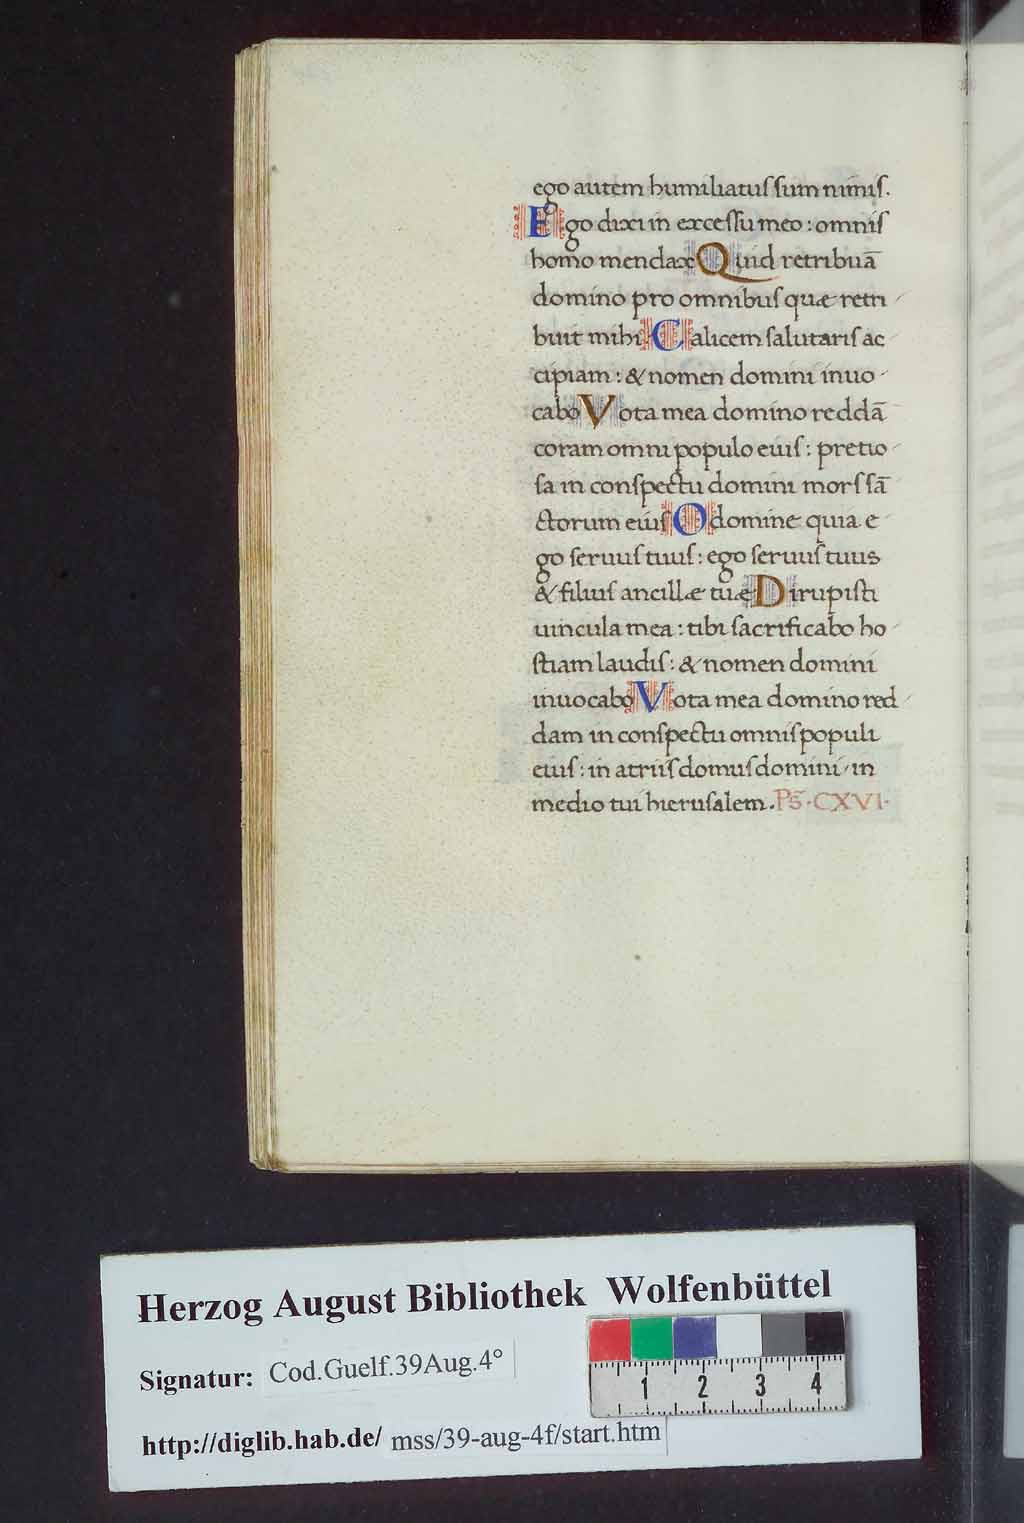 ego autem humiliatuſ ſum nimiſ.
Ego dixi in exceſſu meo : omniſ
homo mendax Quid retribuā
domino pro omnibuſ quæ retri-
buit mihi Calicem ſalutariſ ac-
cipiam : & nomen domini inuo-
cabo Vota mea domino reddā
coram omni populo eiuſ : pretio-
ſa in conſpectu domini morſ ſā-
ctorum eiuſ O domine quia e-
go ſeruuſ tuuſ : ego ſeruuſ tuus
& filiuſ ancillæ tuæ Dirupiſti
uincula mea : tibi ſacrificabo ho-
ſtiam laudiſ : & nomen domini
inuocabo Vota mea domino red-
dam in conſpectu omniſ populi
eiuſ : in atriiſ domuſ domini / in
medio tui hieruſalem. Pſ̄ · CXVI ·
Herzog August Bibliothek Wolfenbüttel
Signatur: Cod.Guelf.39Aug.4°
http://diglib.hab.de/ mss/39-aug-4f/start.htm
1 2 3 4